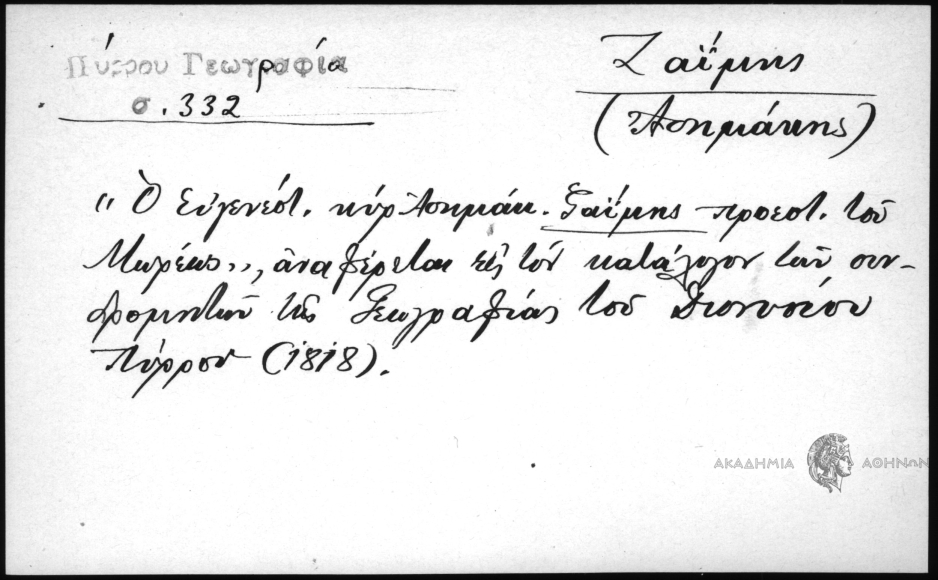 Πύρρου Γεωγραφία
σ. 332
Ζαΐμης
(Ἀσημάκης)
"Ὁ Εὐγενέστ. κύρ Ἀσημάκ. Ζαΐμης προεστ. τοῦ
Μωρέως", ἀναφέρεται εἰς τόν κατάλογον τῶν συν-
δρομητῶν τῆς Γεωγραφίας τοῦ Διονυσίου
Πύρρου (1818).
ΑΚΑΔΗΜΙΑ ΑΘΗΝΩΝ